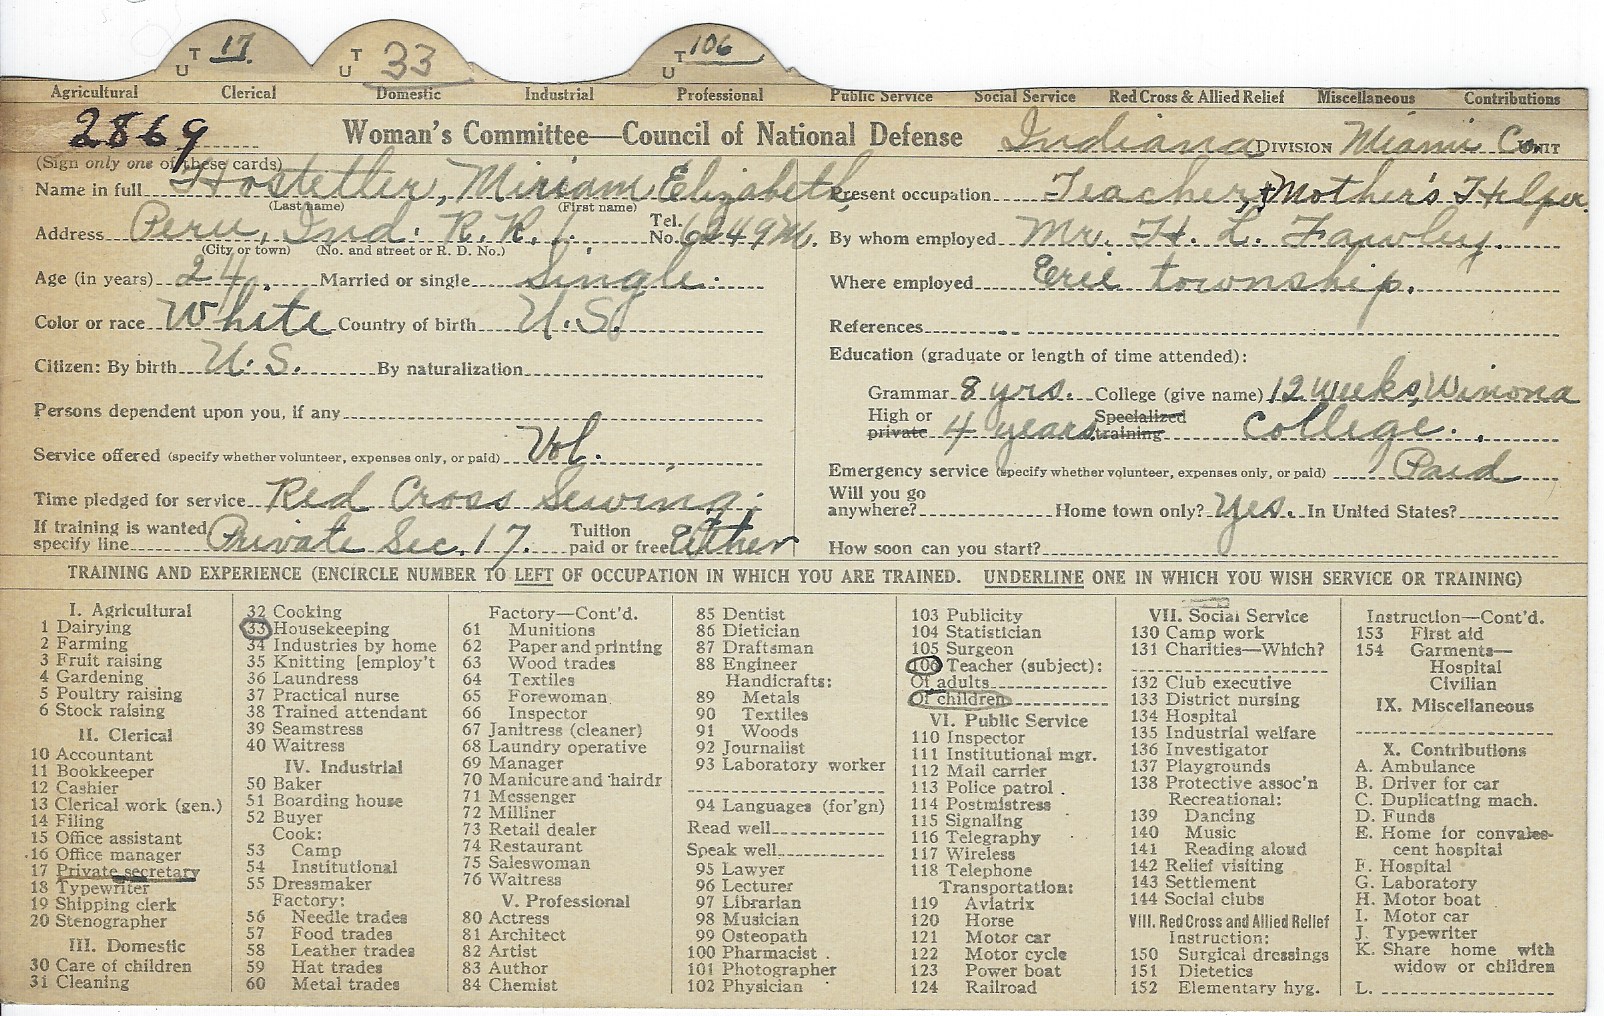 T U 17 T U 33 T U 106
Agricultural Clerical Domestic Industrial Professional Public Service Social Service Red Cross & Allied Relief Miscellaneous Contributions
2869 Woman's Committee—Council of National Defense Indiana DIVISION Miami Co. UNIT
(Sign only one of these cards)
Name in full Hostetler, Miriam Elizabeth,
(Last name) (First name)
Address Peru, Ind. R. R. 1. Tel. No.
(City or town) (No. and street or R. D. No.)
Age (in years) 24. Married or single Single.
Color or race White Country of birth U.S.
Citizen: By birth U.S. By naturalization
Persons dependent upon you, if any
Service offered (specify whether volunteer, expenses only, or paid) Vol.
Time pledged for service Red Cross Sewing.
If training is wanted specify line Private Sec. 17. Tuition paid or free Either
Present occupation Teacher, & Mother's Helper.
By whom employed Mr. H. L. Fawley.
Where employed Erie township.
References
Education (graduate or length of time attended):
Grammar 8 yrs. College (give name) 12 weeks, Winona
High or private 4 years Specialized training College.
Emergency service (specify whether volunteer, expenses only, or paid) Paid
Will you go anywhere? Home town only? Yes. In United States?
How soon can you start?
TRAINING AND EXPERIENCE (ENCIRCLE NUMBER TO LEFT OF OCCUPATION IN WHICH YOU ARE TRAINED. UNDERLINE ONE IN WHICH YOU WISH SERVICE OR TRAINING)
I. Agricultural
1 Dairying
2 Farming
3 Fruit raising
4 Gardening
5 Poultry raising
6 Stock raising
II. Clerical
10 Accountant
11 Bookkeeper
12 Cashier
13 Clerical work (gen.)
14 Filing
15 Office assistant
16 Office manager
17 Private secretary
18 Typewriter
19 Shipping clerk
20 Stenographer
III. Domestic
30 Care of children
31 Cleaning
32 Cooking
33 Housekeeping
34 Industries by home
35 Knitting [employ't
36 Laundress
37 Practical nurse
38 Trained attendant
39 Seamstress
40 Waitress
IV. Industrial
50 Baker
51 Boarding house
52 Buyer
Cook:
53 Camp
54 Institutional
55 Dressmaker
Factory:
56 Needle trades
57 Food trades
58 Leather trades
59 Hat trades
60 Metal trades
Factory—Cont'd.
61 Munitions
62 Paper and printing
63 Wood trades
64 Textiles
65 Forewoman
66 Inspector
67 Janitress (cleaner)
68 Laundry operative
69 Manager
70 Manicure and hairdr
71 Messenger
72 Milliner
73 Retail dealer
74 Restaurant
75 Saleswoman
76 Waitress
V. Professional
80 Actress
81 Architect
82 Artist
83 Author
84 Chemist
85 Dentist
86 Dietician
87 Draftsman
88 Engineer
Handicrafts:
89 Metals
90 Textiles
91 Woods
92 Journalist
93 Laboratory worker
94 Languages (for'gn)
Read well
Speak well
95 Lawyer
96 Lecturer
97 Librarian
98 Musician
99 Osteopath
100 Pharmacist
101 Photographer
102 Physician
103 Publicity
104 Statistician
105 Surgeon
106 Teacher (subject):
Of adults
Of children
VI. Public Service
110 Inspector
111 Institutional mgr.
112 Mail carrier
113 Police patrol
114 Postmistress
115 Signaling
116 Telegraphy
117 Wireless
118 Telephone
Transportation:
119 Aviatrix
120 Horse
121 Motor car
122 Motor cycle
123 Power boat
124 Railroad
VII. Social Service
130 Camp work
131 Charities—Which?
132 Club executive
133 District nursing
134 Hospital
135 Industrial welfare
136 Investigator
137 Playgrounds
138 Protective assoc'n
Recreational:
139 Dancing
140 Music
141 Reading aloud
142 Relief visiting
143 Settlement
144 Social clubs
VIII. Red Cross and Allied Relief
Instruction:
150 Surgical dressings
151 Dietetics
152 Elementary hyg.
Instruction—Cont'd.
153 First aid
154 Garments—
Hospital
Civilian
IX. Miscellaneous
X. Contributions
A. Ambulance
B. Driver for car
C. Duplicating mach.
D. Funds
E. Home for convales-
cent hospital
F. Hospital
G. Laboratory
H. Motor boat
I. Motor car
J. Typewriter
K. Share home with
widow or children
L.